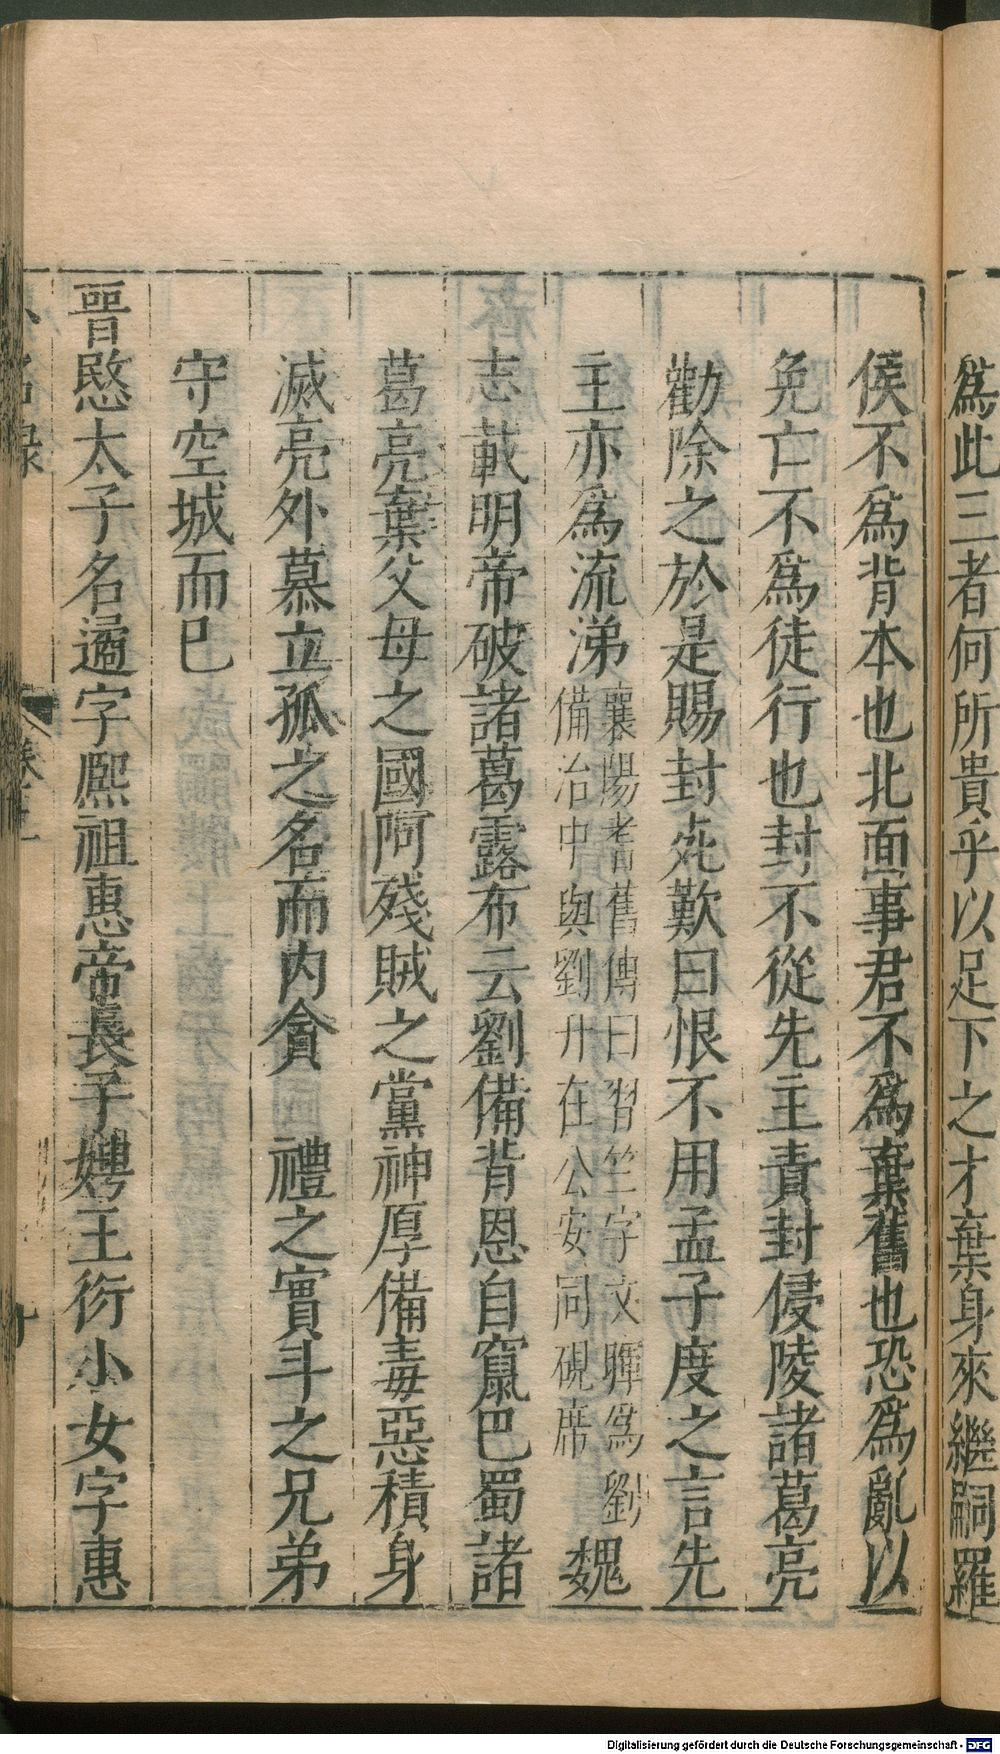 爲此三者何所貴乎以足下之才棄身來繼嗣羅
侯不爲背本也北面事君不爲棄舊也恐爲亂以
免亡不爲徒行也封不從先主責封侵陵諸葛亮
勸除之於是賜封死歎曰恨不用孟子度之言先
主亦爲流涕
襄陽耆舊傳曰習竺字文暉爲劉
備治中與劉升在公安同硯席
魏
志載明帝破諸葛露布云劉備背恩自竄巴蜀諸
葛亮棄父母之國阿殘賊之黨神厚備毒惡積身
滅亮外慕立孤之名而内貪 禮之實斗之兄弟
守空城而巳
晉愍太子名遹字熈祖惠帝長子娉王衍小女字惠
小名録
卷二
十
Digitalisierung gefördert durch die Deutsche Forschungsgemeinschaft - DFG